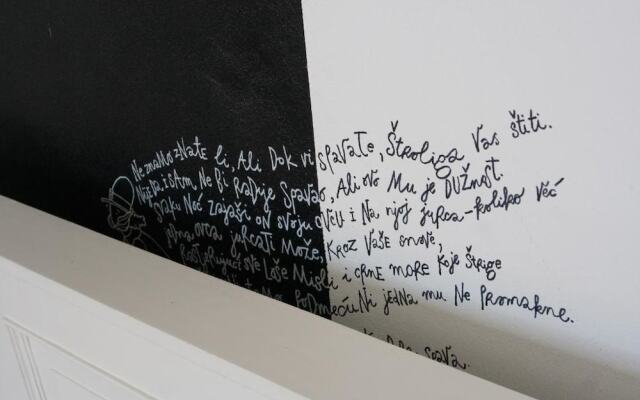 Ne znamo znate li, Ali Dok vi spavate, Štroliga Vas štiti.
Nije da i sam, Ne Bi Radije Spavao, Ali ovo Mu je DUŽNOST.
Svaku Noć zajaši on svoju ovcu i Na njoj jurca-koliko već
jedna ovca jurcati Može, kroz Vaše snove,
Rastjerujući sve Loše Misli i crne more koje Štrige
podmeću. Ni jedna mu Ne Promakne.
spava.